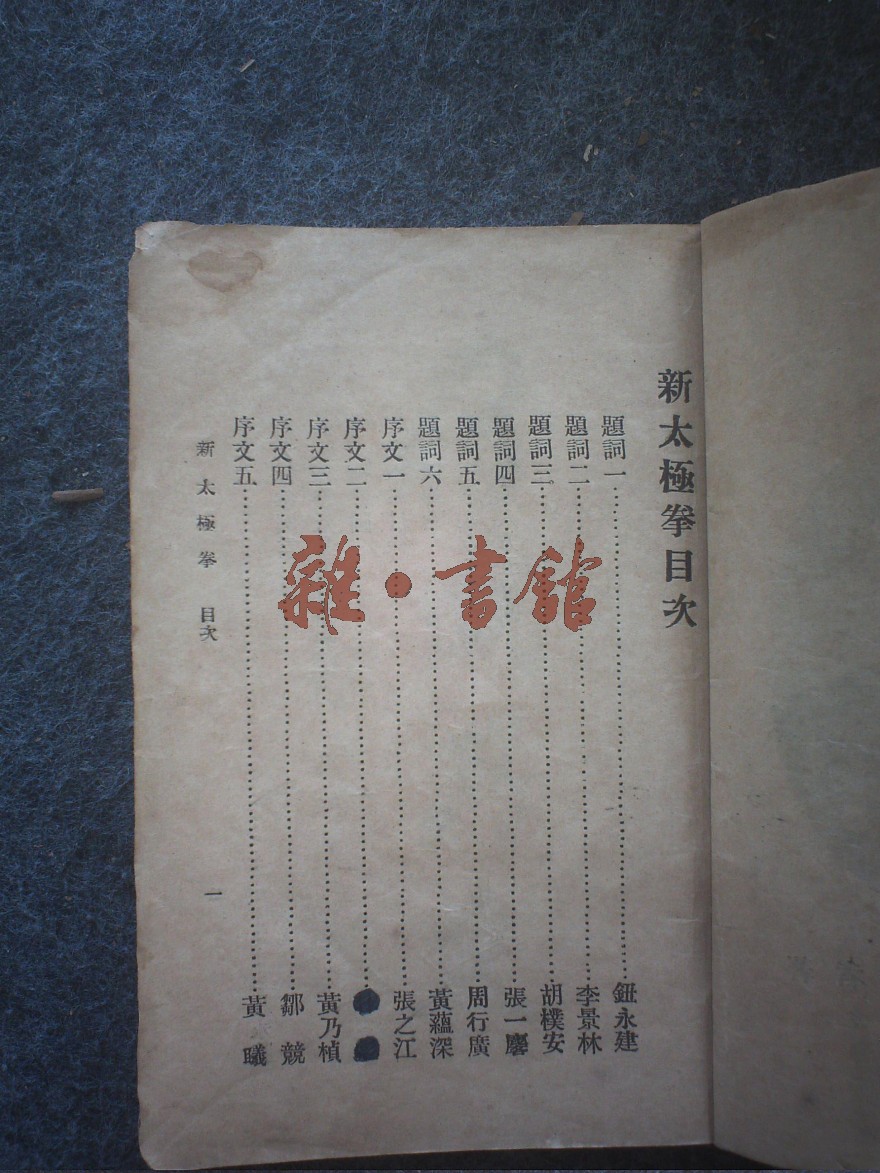 新太極拳目次
題詞一…………鈕永建
題詞二…………李景林
題詞三…………胡樸安
題詞四…………張一麐
題詞五…………周行廣
題詞六…………黃蘊深
序文一…………張之江
序文二…………
序文三…………黃乃楨
序文四…………鄒競
序文五…………黃曦
新太極拳 目次 一
雜·書館